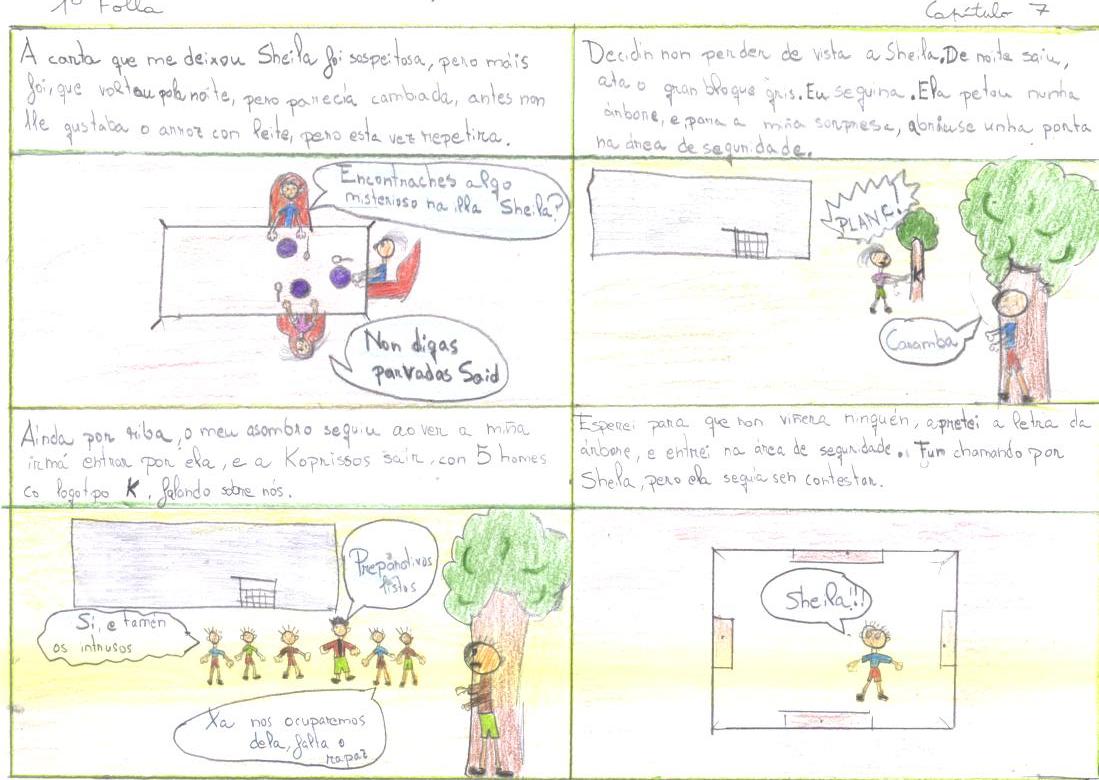 1º Folla
Capítulo 7
A carta que me deixou Sheila foi sospeitosa, pero máis
foi, que voltou pola noite, pero parecía cambiada, antes non
lle gustaba o arroz con leite, pero esta vez repetira.
Encontraches algo
misterioso na illa Sheila?
Non digas
parvadas Said
Decidín non perder de vista a Sheila. De noite saiu,
ata o gran bloque gris. Eu seguina. Ela petou nunha
árbore, e, para a miña sorpresa, abriuse unha porta
na área de seguridade.
PLANK!
K
Caramba
Ainda por riba, o meu asombro seguiu ao ver a miña
irmá entrar por ela, e a Koprissos sair, con 5 homes
co logotipo K, falando sobre nós.
Preparativos
listos
Si, e tamén
os intrusos
Xa nos ocuparemos
dela, falta o
rapaz
Esperei para que non viñera ninguén, apretei a letra da
árbore, e entrei na área de seguridade. Fun chamando por
Sheila, pero ela seguía sen contestar.
Sheila!!